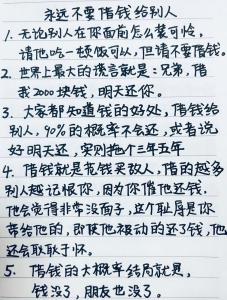 永远不要借钱给别人
1. 无论别人在你面前怎么装可怜,
请他吃一顿饭可以, 但请不要借钱。
2. 世界上最大的谎言就是: 兄弟, 借
我2000块钱, 明天还你。
3. 大家都知道钱的好处, 借钱给
别人, 90%的概率不会还, 或者说
好明天还, 实则拖个三年五年
4. 借钱就是花钱买敌人, 借的越多
别人越记恨你, 因为你催他还钱.
他会觉得非常没面子, 这个耻辱是你
带给他的, 即使他被动的还了钱, 他
还会耿耿于怀。
5. 借钱的大概率结局就是,
钱没了, 朋友也没了。